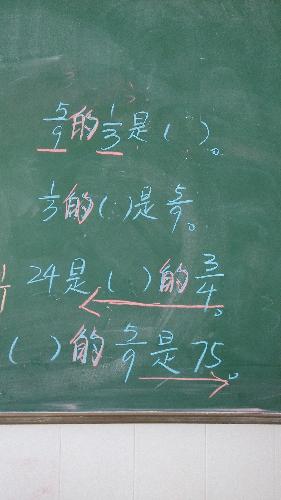 5/9的1/3是( )。
1/3的( )是5/9。
24是( )的3/4。
( )的5/9是75。